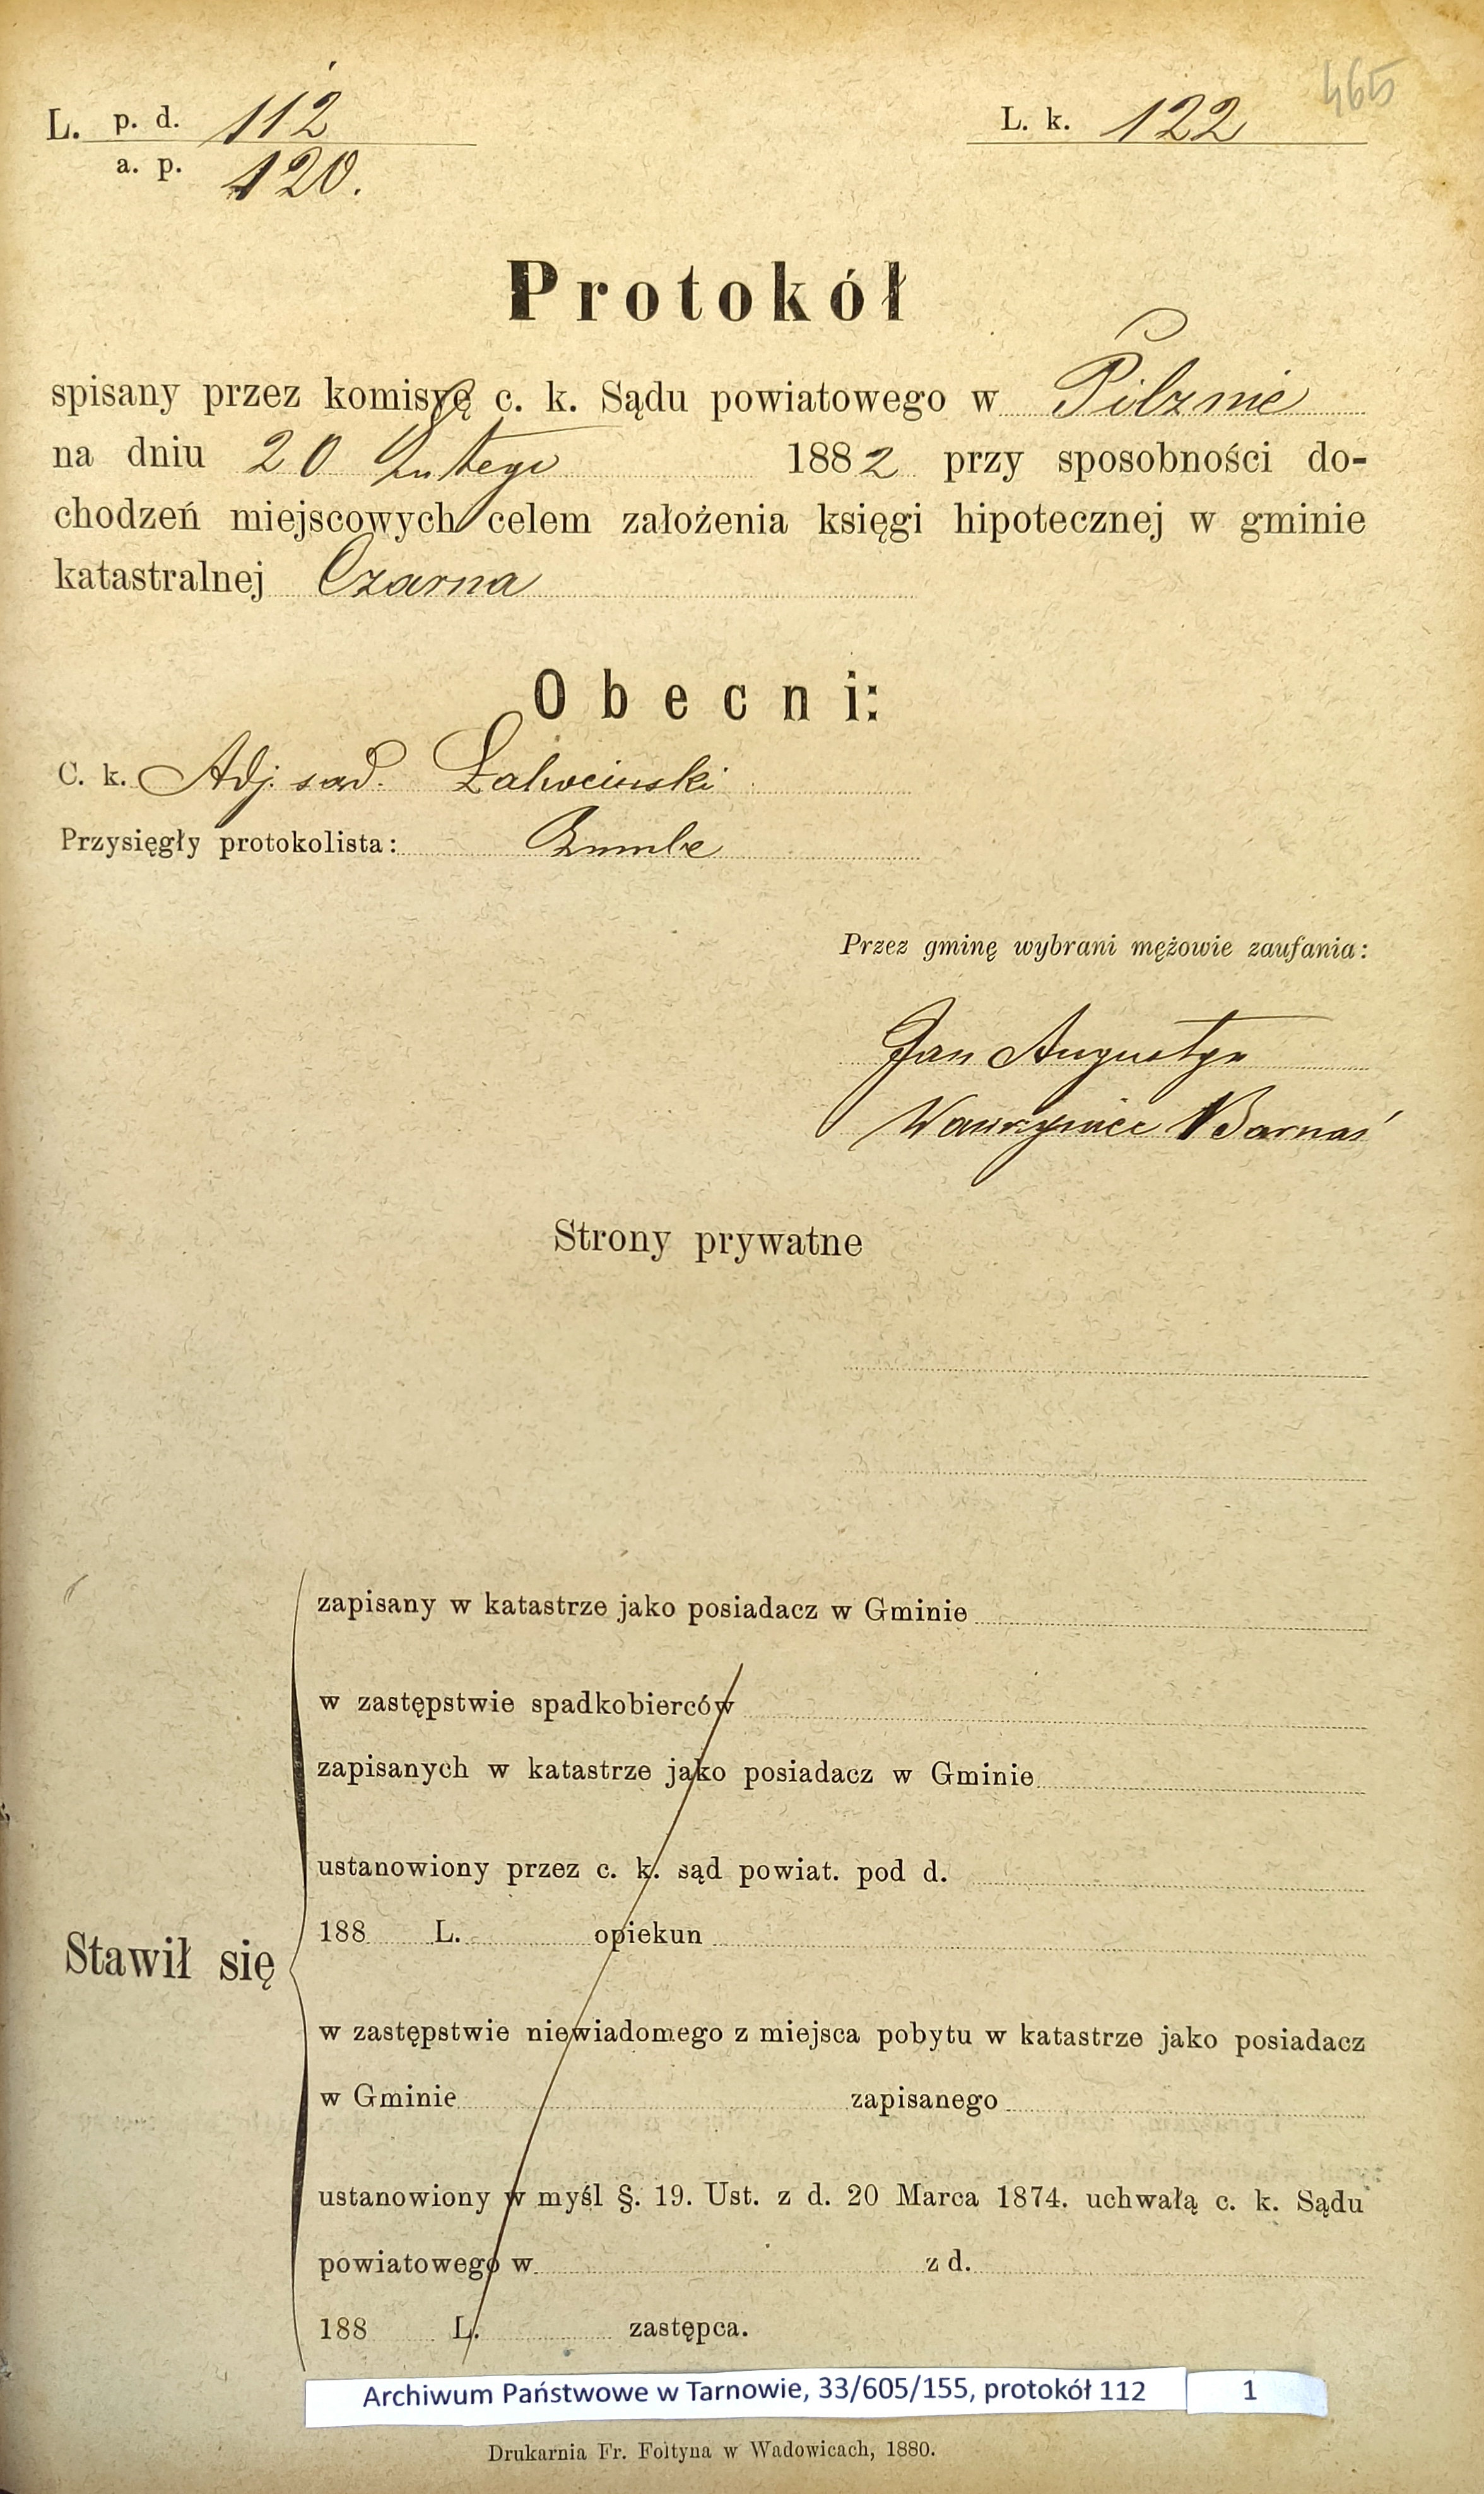 465
L. p. d. 112
a. p. 120.
L. k. 122
Protokół
spisany przez komisyę c. k. Sądu powiatowego w Pilznie
na dniu 20 Lutego 1882 przy sposobności do-
chodzeń miejscowych celem założenia księgi hipotecznej w gminie
katastralnej Czarna
Obecni:
C. k. Adj. sąd.
Przysięgły protokolista:
Przez gminę wybrani mężowie zaufania:
Jan Augustyn
Wawrzyniec Barnaś
Strony prywatne
zapisany w katastrze jako posiadacz w Gminie
w zastępstwie spadkobierców
zapisanych w katastrze jako posiadacz w Gminie
ustanowiony przez c. k. sąd powiat. pod d.
188 L. opiekun
Stawił się
w zastępstwie niewiadomego z miejsca pobytu w katastrze jako posiadacz
w Gminie zapisanego
ustanowiony w myśl §. 19. Ust. z d. 20 Marca 1874. uchwałą c. k. Sądu
powiatowego w z d.
188 L. zastępca.
Archiwum Państwowe w Tarnowie, 33/605/155, protokół 112 1
Drukarnia Fr. Foltyna w Wadowicach, 1880.